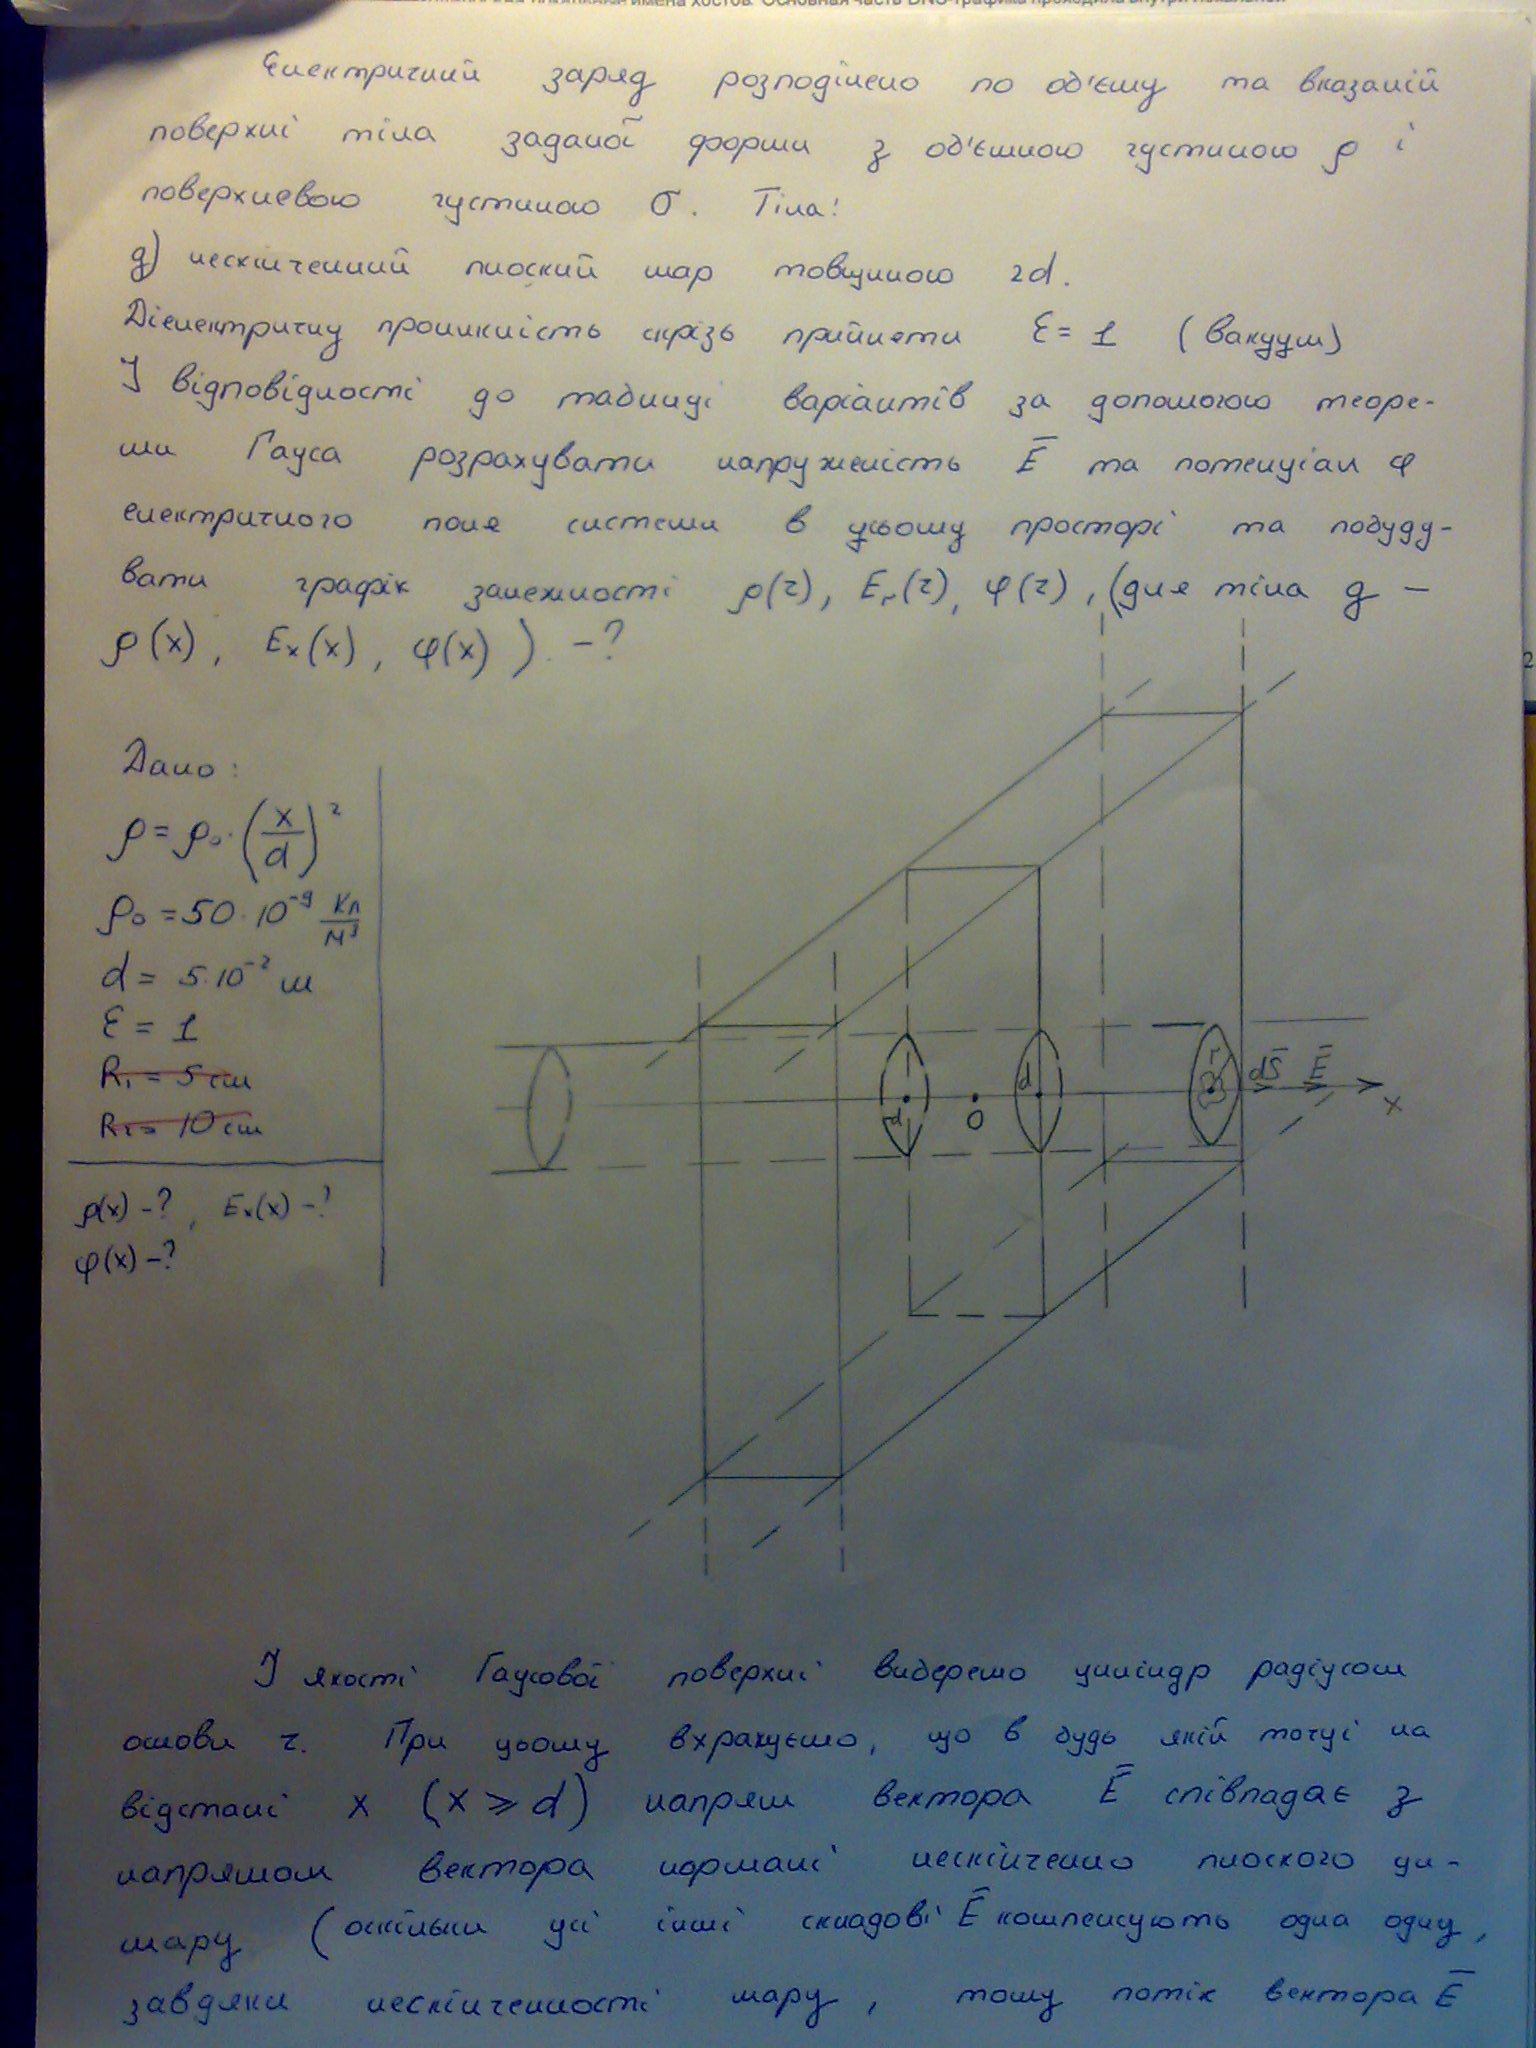 Електричний заряд розподілено по об'єму та вказаній
поверхні тіла заданої форми з об'ємною густиною ρ і
поверхневою густиною σ. Тіла:
д) нескінченний плоский шар товщиною 2d.
Діелектричну проникність скрізь прийняти ε = 1 (вакуум)
У відповідності до таблиці варіантів за допомогою теоре-
ми Гауса розрахувати напруженість E̅ та потенціал φ
електричного поля системи в усьому просторі та побуду-
вати графік залежності ρ(r), Er(r), φ(r), (для тіла д –
ρ(x), Ex(x), φ(x)). -?
Дано:
ρ = ρ₀·(x/d)²
ρ₀ = 50·10⁻⁹ Кл/м³
d = 5·10⁻² м
ε = 1
R₁ = 5 см
R₂ = 10 см
ρ(x) -?, Ex(x) -?
φ(x) -?
r dS̅ E̅
d O d x
У якості Гаусової поверхні виберемо циліндр радіусом
основи r. При цьому врахуємо, що в будь якій точці на
відстані x (x ⩾ d) напрям вектора E̅ співпадає з
напрямом вектора нормалі нескінченно плоского ци-
шару (оскільки усі інші складові E̅ компенсують одна одну,
завдяки нескінченності шару, тому потік вектора E̅